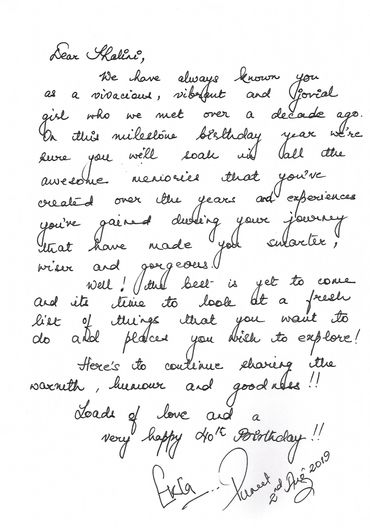 Dear Shalini,
We have always known you
as a vivacious, vibrant and jovial
girl who we met over a decade ago.
On this milestone birthday year we're
sure you will soak in all the
awesome memories that you've
created over the years and experiences
you've gained during your journey
that have made you smarter,
wiser and gorgeous.
Well! the best is yet to come
and its time to look at a fresh
list of things that you want to
do and places you wish to explore!
Here's to continue sharing the
warmth, humour and goodness!!
Loads of love and a
very happy 40th Birthday!!
Ekta... Puneet
2nd Aug 2019